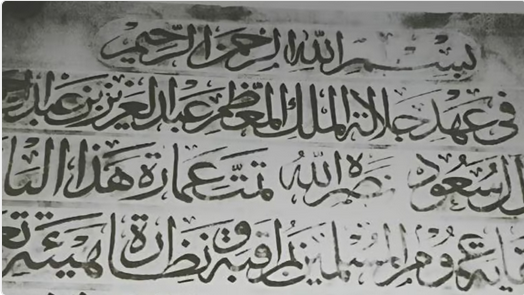 بسم الله الرحمن الرحيم
في عهد جلالة الملك المعظم عبد العزيز بن عبد
ل سعود نصره الله تمت عمارة هذا البا
عموم المسلمين بمراقبة ونظارة هيئة